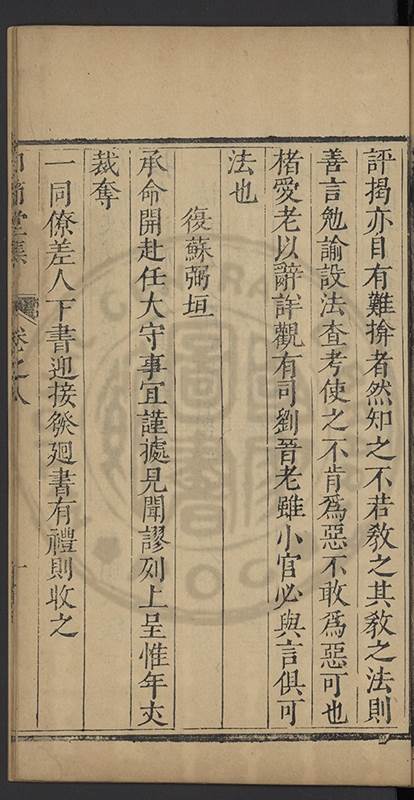 評揭亦自有難揜者然知之不若教之其教之法則
善言勉諭設法查考使之不肯爲惡不敢爲惡可也
楮愛老以辭詳觀有司劉晉老雖小官必與言俱可
法也
復蘇弼垣
承命開赴任大守事宜謹處見聞謬列上呈惟年丈
裁奪
一同僚差人下書迎接發廻書有禮則收之
堂集
卷之八